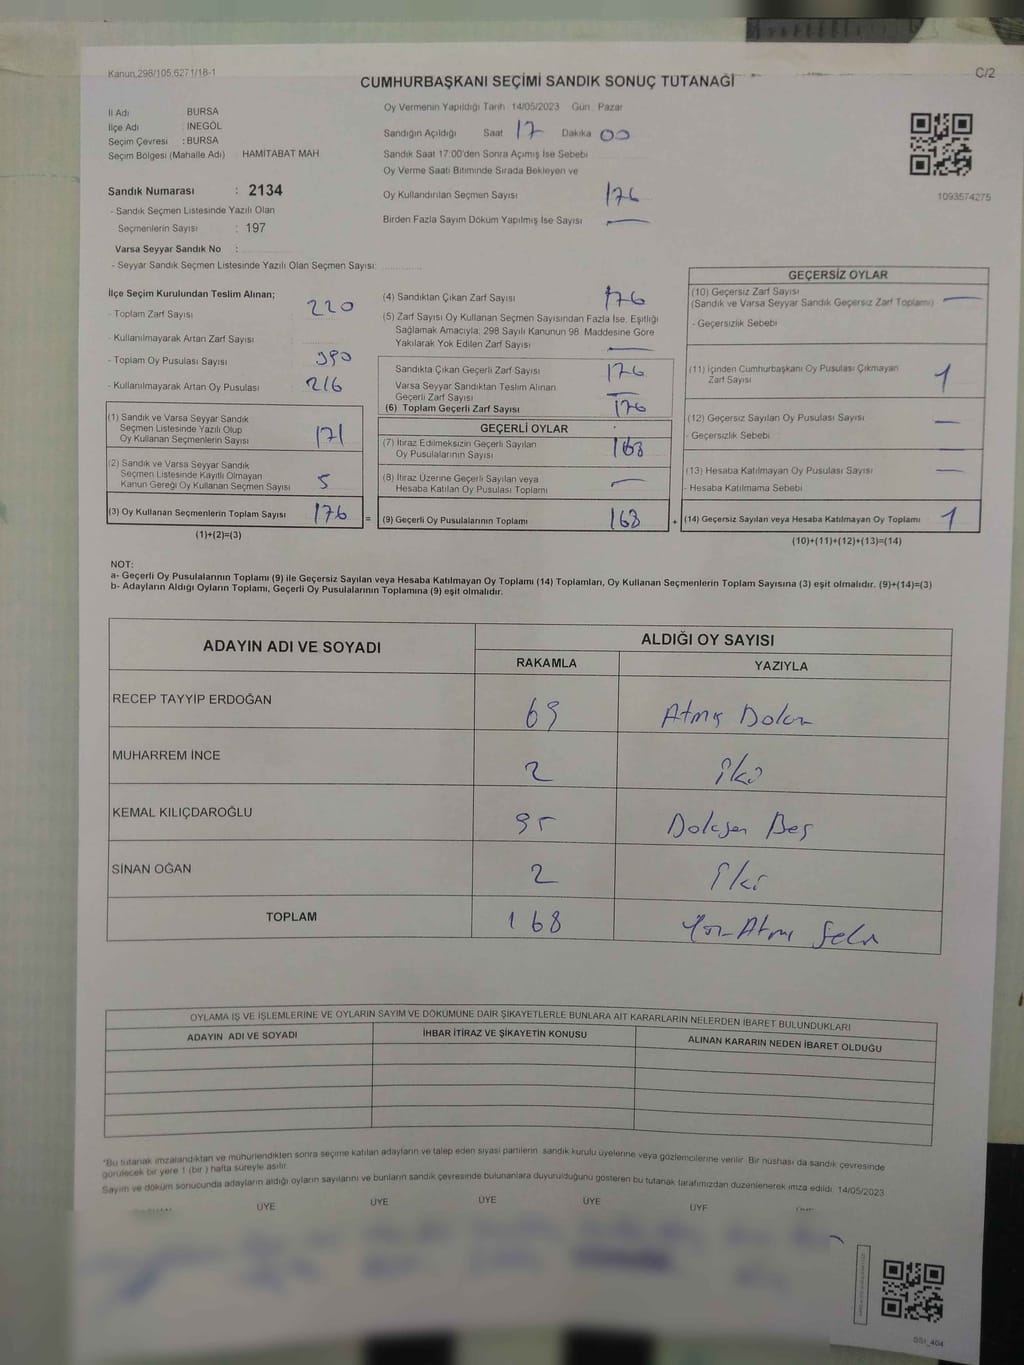 Kanun.298/105,6271/18-1
C/2
CUMHURBAŞKANI SEÇİMİ SANDIK SONUÇ TUTANAĞI
İl Adı BURSA
İlçe Adı : İNEGÖL
Seçim Çevresi : BURSA
Seçim Bölgesi (Mahalle Adı) HAMİTABAT MAH
Sandık Numarası : 2134
- Sandık Seçmen Listesinde Yazılı Olan
Seçmenlerin Sayısı : 197
Varsa Seyyar Sandık No :
- Seyyar Sandık Seçmen Listesinde Yazılı Olan Seçmen Sayısı:
Oy Vermenin Yapıldığı Tarih 14/05/2023 Gün Pazar
Sandığın Açıldığı Saat 17 Dakika 00
Sandık Saat 17:00'den Sonra Açımış İse Sebebi
Oy Verme Saati Bitiminde Sırada Bekleyen ve
Oy Kullandırılan Seçmen Sayısı 176
Birden Fazla Sayım Döküm Yapılmış İse Sayısı —
1093574275
İlçe Seçim Kurulundan Teslim Alınan;
- Toplam Zarf Sayısı 220
- Kullanılmayarak Artan Zarf Sayısı
- Toplam Oy Pusulası Sayısı 390
- Kullanılmayarak Artan Oy Pusulası 216
(1) Sandık ve Varsa Seyyar Sandık
Seçmen Listesinde Yazılı Olup
Oy Kullanan Seçmenlerin Sayısı 171
(2) Sandık ve Varsa Seyyar Sandık
Seçmen Listesinde Kayıtlı Olmayan
Kanun Gereği Oy Kullanan Seçmen Sayısı 5
(3) Oy Kullanan Seçmenlerin Toplam Sayısı 176
(1)+(2)=(3)
(4) Sandıktan Çıkan Zarf Sayısı 176
(5) Zarf Sayısı Oy Kullanan Seçmen Sayısından Fazla İse, Eşitliği
Sağlamak Amacıyla; 298 Sayılı Kanunun 98. Maddesine Göre
Yakılarak Yok Edilen Zarf Sayısı —
Sandıkta Çıkan Geçerli Zarf Sayısı 176
Varsa Seyyar Sandıktan Teslim Alınan
Geçerli Zarf Sayısı —
(6) Toplam Geçerli Zarf Sayısı 176
GEÇERLİ OYLAR
(7) İtiraz Edilmeksizin Geçerli Sayılan
Oy Pusulalarının Sayısı 168
(8) İtiraz Üzerine Geçerli Sayılan veya
Hesaba Katılan Oy Pusulası Toplamı —
= (9) Geçerli Oy Pusulalarının Toplamı 168
GEÇERSİZ OYLAR
(10) Geçersiz Zarf Sayısı —
(Sandık ve Varsa Seyyar Sandık Geçersiz Zarf Toplamı)
- Geçersizlik Sebebi
(11) İçinden Cumhurbaşkanı Oy Pusulası Çıkmayan
Zarf Sayısı 1
(12) Geçersiz Sayılan Oy Pusulası Sayısı —
- Geçersizlik Sebebi —
(13) Hesaba Katılmayan Oy Pusulası Sayısı —
- Hesaba Katılmama Sebebi
+ (14) Geçersiz Sayılan veya Hesaba Katılmayan Oy Toplamı 1
(10)+(11)+(12)+(13)=(14)
NOT:
a- Geçerli Oy Pusulalarının Toplamı (9) ile Geçersiz Sayılan veya Hesaba Katılmayan Oy Toplamı (14) Toplamları, Oy Kullanan Seçmenlerin Toplam Sayısına (3) eşit olmalıdır. (9)+(14)=(3)
b- Adayların Aldığı Oyların Toplamı, Geçerli Oy Pusulalarının Toplamına (9) eşit olmalıdır.
ADAYIN ADI VE SOYADI ALDIĞI OY SAYISI
RAKAMLA YAZIYLA
RECEP TAYYİP ERDOĞAN 69 Atmış Dokuz
MUHARREM İNCE 2 iki
KEMAL KILIÇDAROĞLU 95 Doksan Beş
SİNAN OĞAN 2 iki
TOPLAM 168 Yüz Atmış Sekiz
OYLAMA İŞ VE İŞLEMLERİNE VE OYLARIN SAYIM VE DÖKÜMÜNE DAİR ŞİKAYETLERLE BUNLARA AİT KARARLARIN NELERDEN İBARET BULUNDUKLARI
ADAYIN ADI VE SOYADI İHBAR İTİRAZ VE ŞİKAYETİN KONUSU ALINAN KARARIN NEDEN İBARET OLDUĞU
"Bu tutanak imzalandıktan ve mühürlendikten sonra seçime katılan adayların ve talep eden siyasi partilerin sandık kurulu üyelerine veya gözlemcilerine verilir. Bir nüshası da sandık çevresinde
görülecek bir yere 1 (bir ) hafta süreyle asılır.
Sayım ve döküm sonucunda adayların aldığı oyların sayılarını ve bunların sandık çevresinde bulunanlara duyurulduğunu gösteren bu tutanak tarafımızdan düzenlenerek imza edildi. 14/05/2023
ÜYE ÜYE ÜYE ÜYE ÜYE
SSI_404